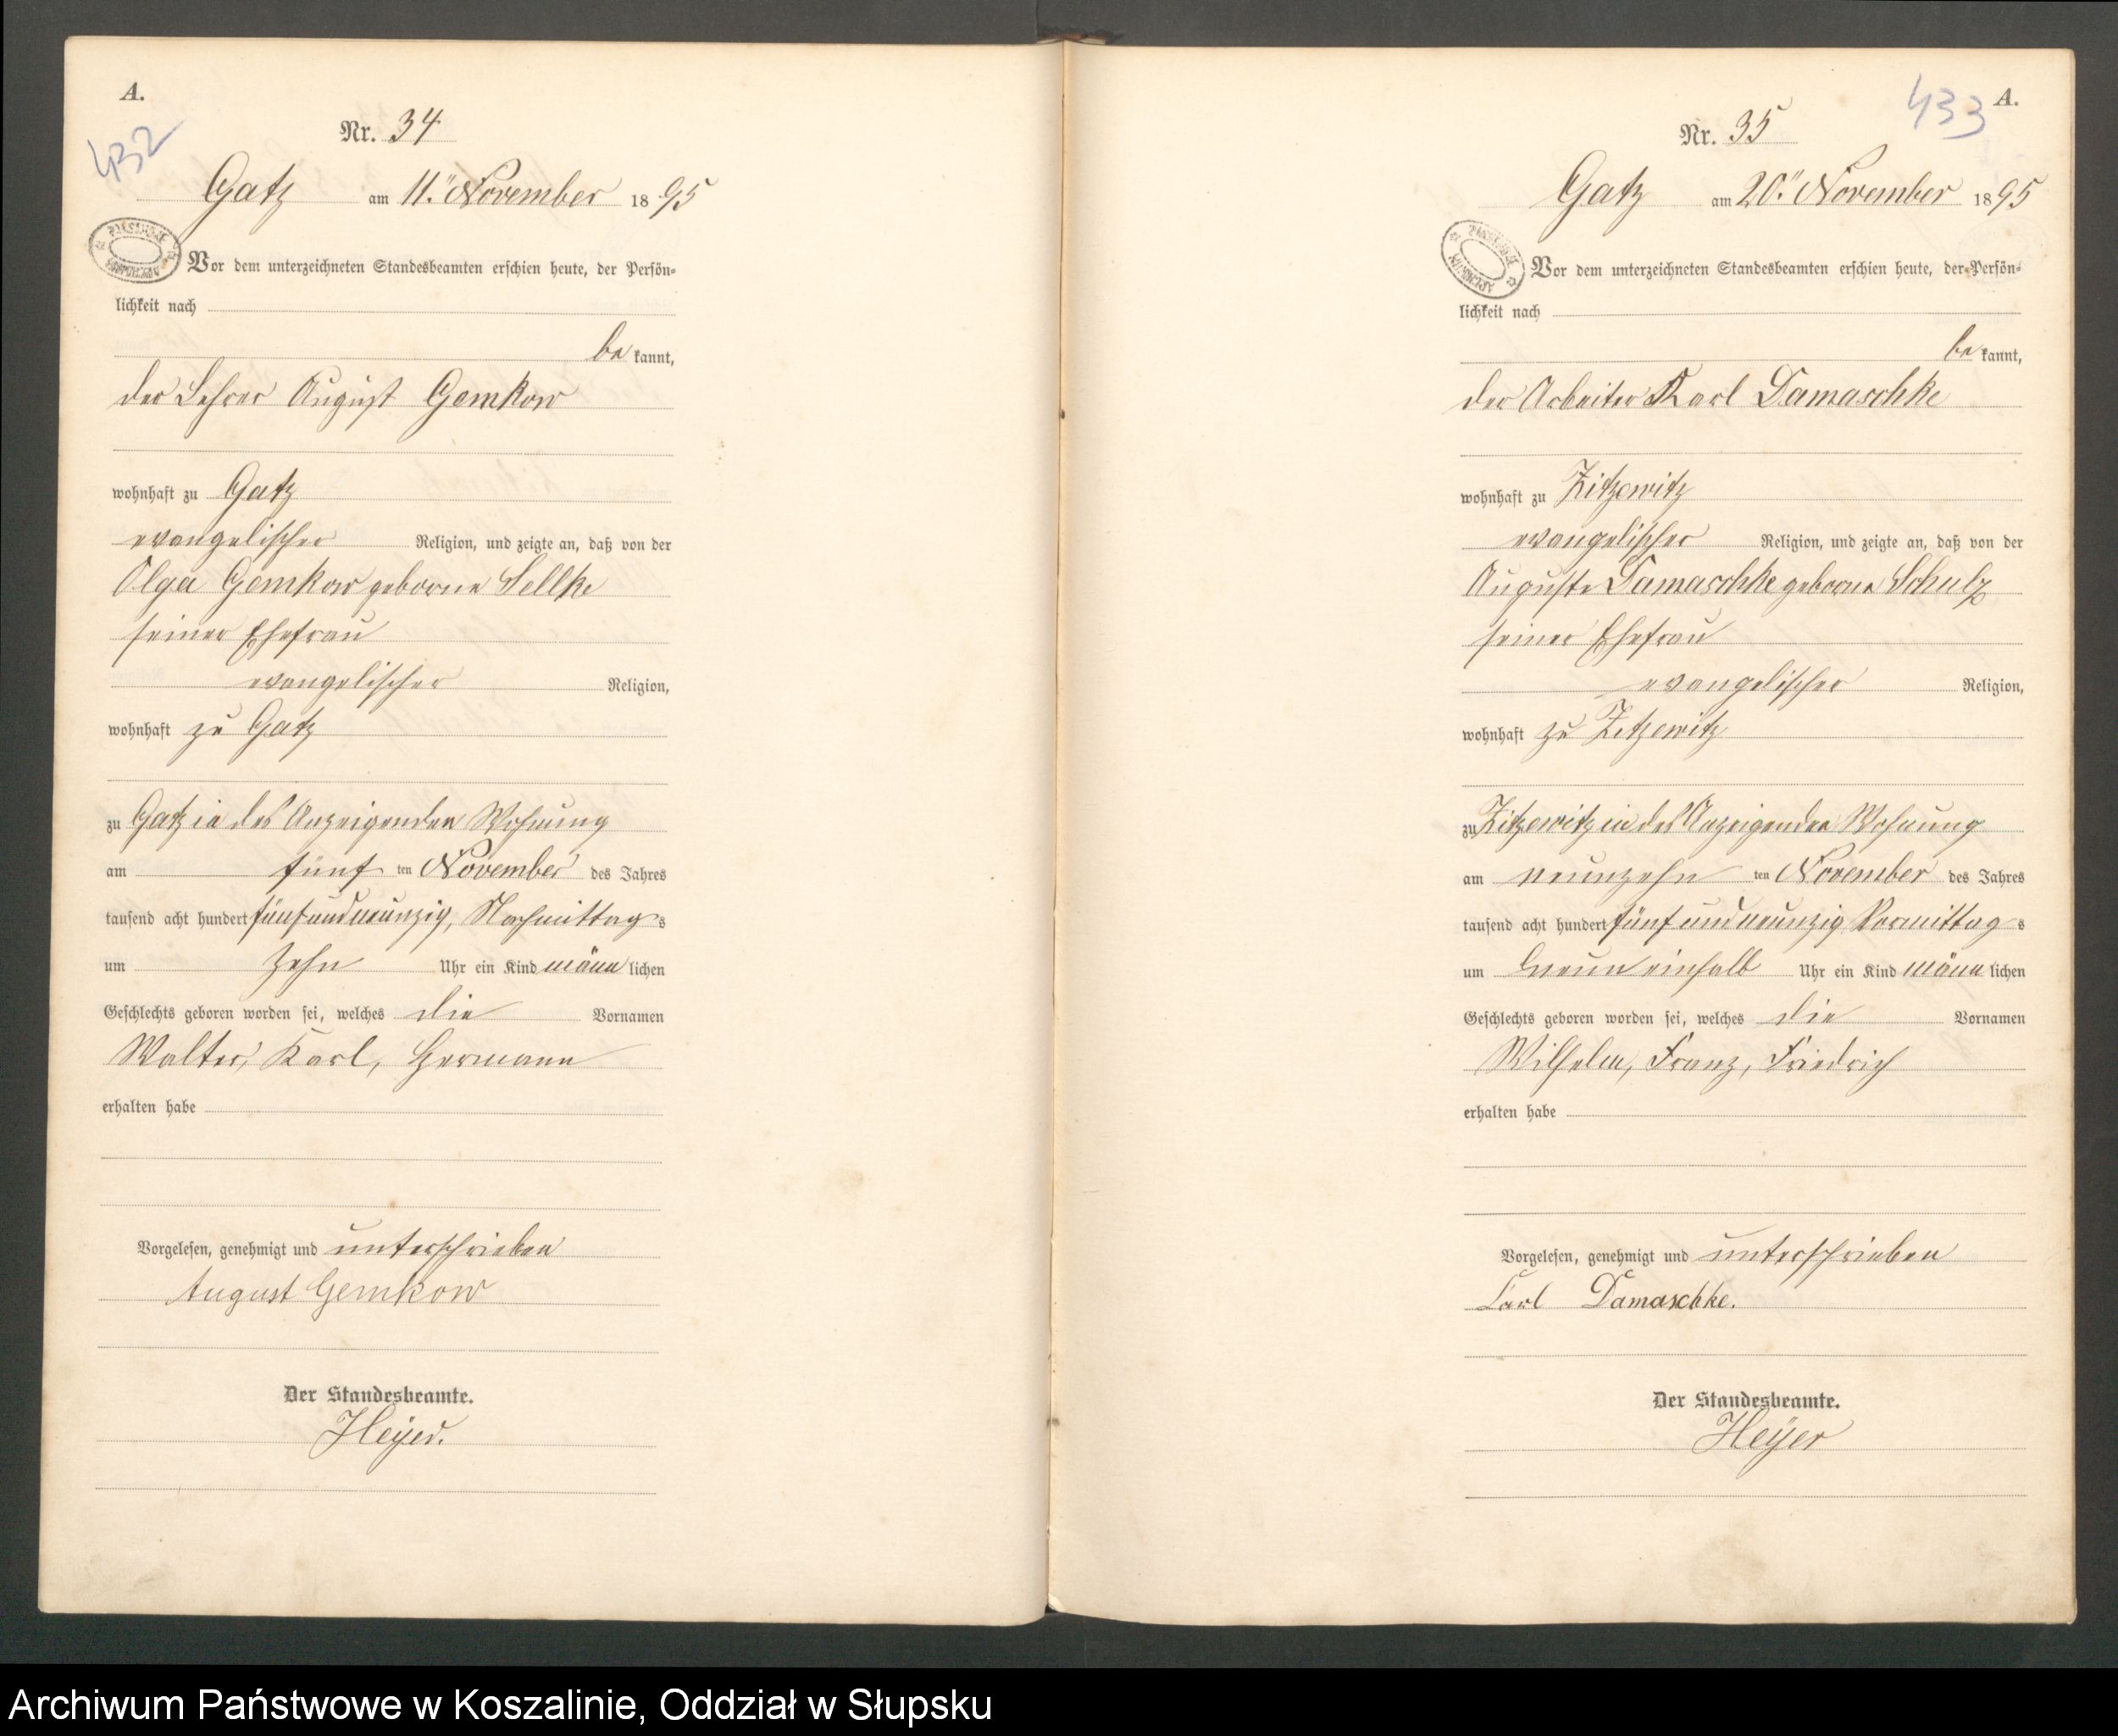 A.
432
Nr. 34
Gatz am 11. November 1895
Vor dem unterzeichneten Standesbeamten erschien heute, der Persön-
lichkeit nach
be kannt,
der Lehrer August Gemkow
wohnhaft zu Gatz
evangelischer Religion, und zeigte an, daß von der
Olga Gemkow geborne Sellke
seiner Ehefrau
evangelischer Religion,
wohnhaft zu Gatz
zu Gatz in des Anzeigenden Wohnung
am fünf ten November des Jahres
tausend acht hundert fünfundneunzig, Nachmittag s
um zehn Uhr ein Kind männ lichen
Geschlechts geboren worden sei, welches die Vornamen
Walter, Karl, Hermann
erhalten habe
Vorgelesen, genehmigt und unterschrieben
August Gemkow
Der Standesbeamte.
Heyer.
433
A.
Nr. 35
Gatz am 20. November 1895
Vor dem unterzeichneten Standesbeamten erschien heute, der Persön-
lichkeit nach
be kannt,
der Arbeiter Karl Damaschke
wohnhaft zu Zitzewitz
evangelischer Religion, und zeigte an, daß von der
Auguste Damaschke geborne Schulz
seiner Ehefrau
evangelischer Religion,
wohnhaft zu Zitzewitz
zu Zitzewitz in des Anzeigenden Wohnung
am neunzehn ten November des Jahres
tausend acht hundert fünfundneunzig Vormittag s
um neun einhalb Uhr ein Kind männ lichen
Geschlechts geboren worden sei, welches die Vornamen
Wilhelm, Franz, Friedrich
erhalten habe
Vorgelesen, genehmigt und unterschrieben
Carl Damaschke.
Der Standesbeamte.
Heyer
Archiwum Państwowe w Koszalinie, Oddział w Słupsku